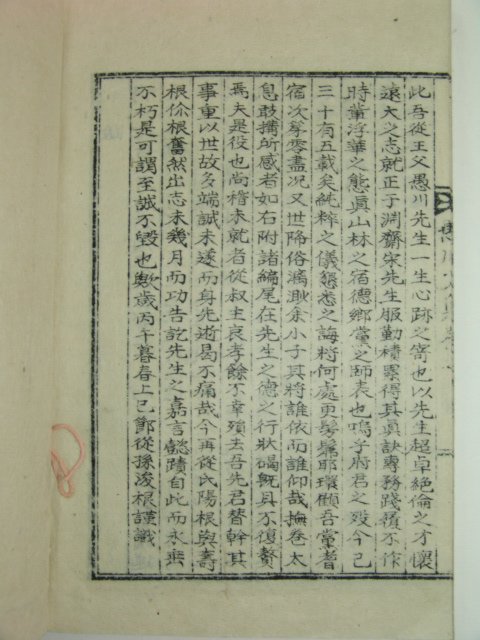 此吾從王父愚川先生一生心跡之寄也以先生超卓絶倫之才懷
遠大之志就正于淵齋宋先生服勤積累得其眞訣專務踐履不作
時輩浮華之態眞山林之宿德鄕黨之師表也嗚乎府君之歿今已
三十有五載矣純粹之儀懇悉之誨將何處更髣髴耶環顧吾黨耆
宿次第零盡况又世降俗漓眇余小子其將誰依而誰仰哉撫卷太
息敢搆所感者如右附諸編尾在先生之德之行狀碣旣具不復贅
焉夫是役也尙稽未就者從叔主哀孝餘不幸殞去吾先君替幹其
事重以世故多端誠未遂而身先逝曷不痛哉今再從氏陽根與壽
根侙根奮然出志未幾月而功告訖先生之嘉言懿蹟自此而永垂
不朽是可謂至誠不毀也歟歲丙午暮春上巳節從孫浚根謹識